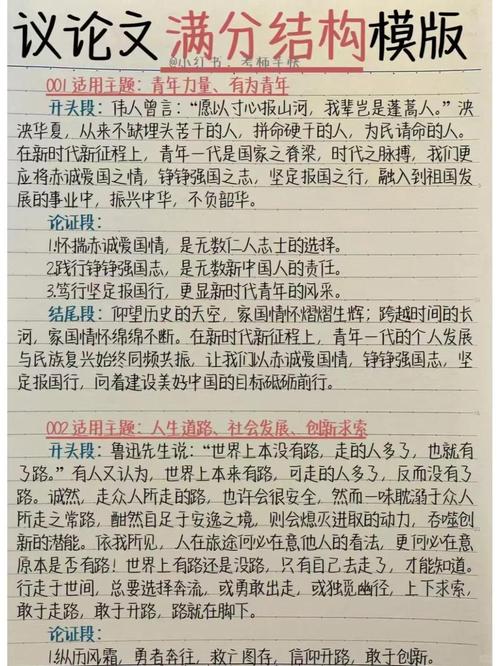 议论文满分结构模版
001 适用主题：青年力量、有为青年
开头段：伟人曾言：“愿以寸心报山河，我辈岂是蓬蒿人。”泱
泱华夏，从来不缺埋头苦干的人，拼命硬干的人，为民请命的人。
在新时代新征程上，青年一代是国家之脊梁，时代之脉搏，我们更
应将赤诚爱国之情，铮铮强国之志，坚定报国之行，融入到祖国发
展的事业中，振兴中华，不负韶华。
论证段：
1.怀揣赤诚爱国情，是无数仁人志士的选择。
2.践行铮铮强国志，是无数新中国人的责任。
3.笃行坚定报国行，更显新时代青年的风采。
结尾段：仰望历史的天空，家国情怀熠熠生辉；跨越时间的长
河，家国情怀绵绵不断。在新时代新征程上，青年一代的个人发展
与民族复兴始终同频共振，让我们以赤诚爱国情，铮铮强国志，坚
定报国行，向着建设美好中国的目标砥砺前行。
002 适用主题：人生道路、社会发展、创新求索
开头段：鲁迅先生说：“世界上本没有路，走的人多了，也就有
了路。”有人又认为，世界上本来有路，可走的人多了，反而没有了
路。诚然，走众人所走的路，也许会很安全，然而一味耽溺于众人
所走之常路，酣然自足于安逸之境，则会熄灭进取的动力，吞噬创
新的潜能。依我所见，人在旅途何必在意他人的看法，更何必在意
原本是否有路！世界上有路还是没路，只有自己去走了，才能知道。
行走于世间，总要选择奔流，或勇敢出走，或独览幽径，上下求索，
敢于走路，敢于开路，路就在脚下。
论证段：
1.纵历风霜，勇者奔往，救亡图存，信仰开路，敢于创新。